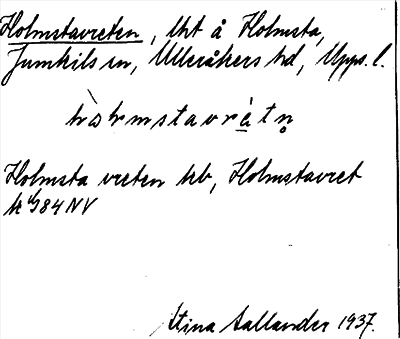 Holmstavreten, lht å Holmsta,
Jumkils sn, Ulleråkers hd, Upps. l.
hòlmstavrètn̥
Holmsta vreten hb, Holmstavret
k 84 NV
Stina Sallander 1937.